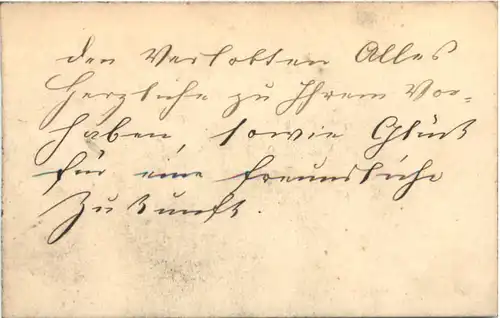 den Verlobten Alles
Herzliche zu Ihrem Vor-
haben, sowie Glück
für eine freundliche
Zukunft.